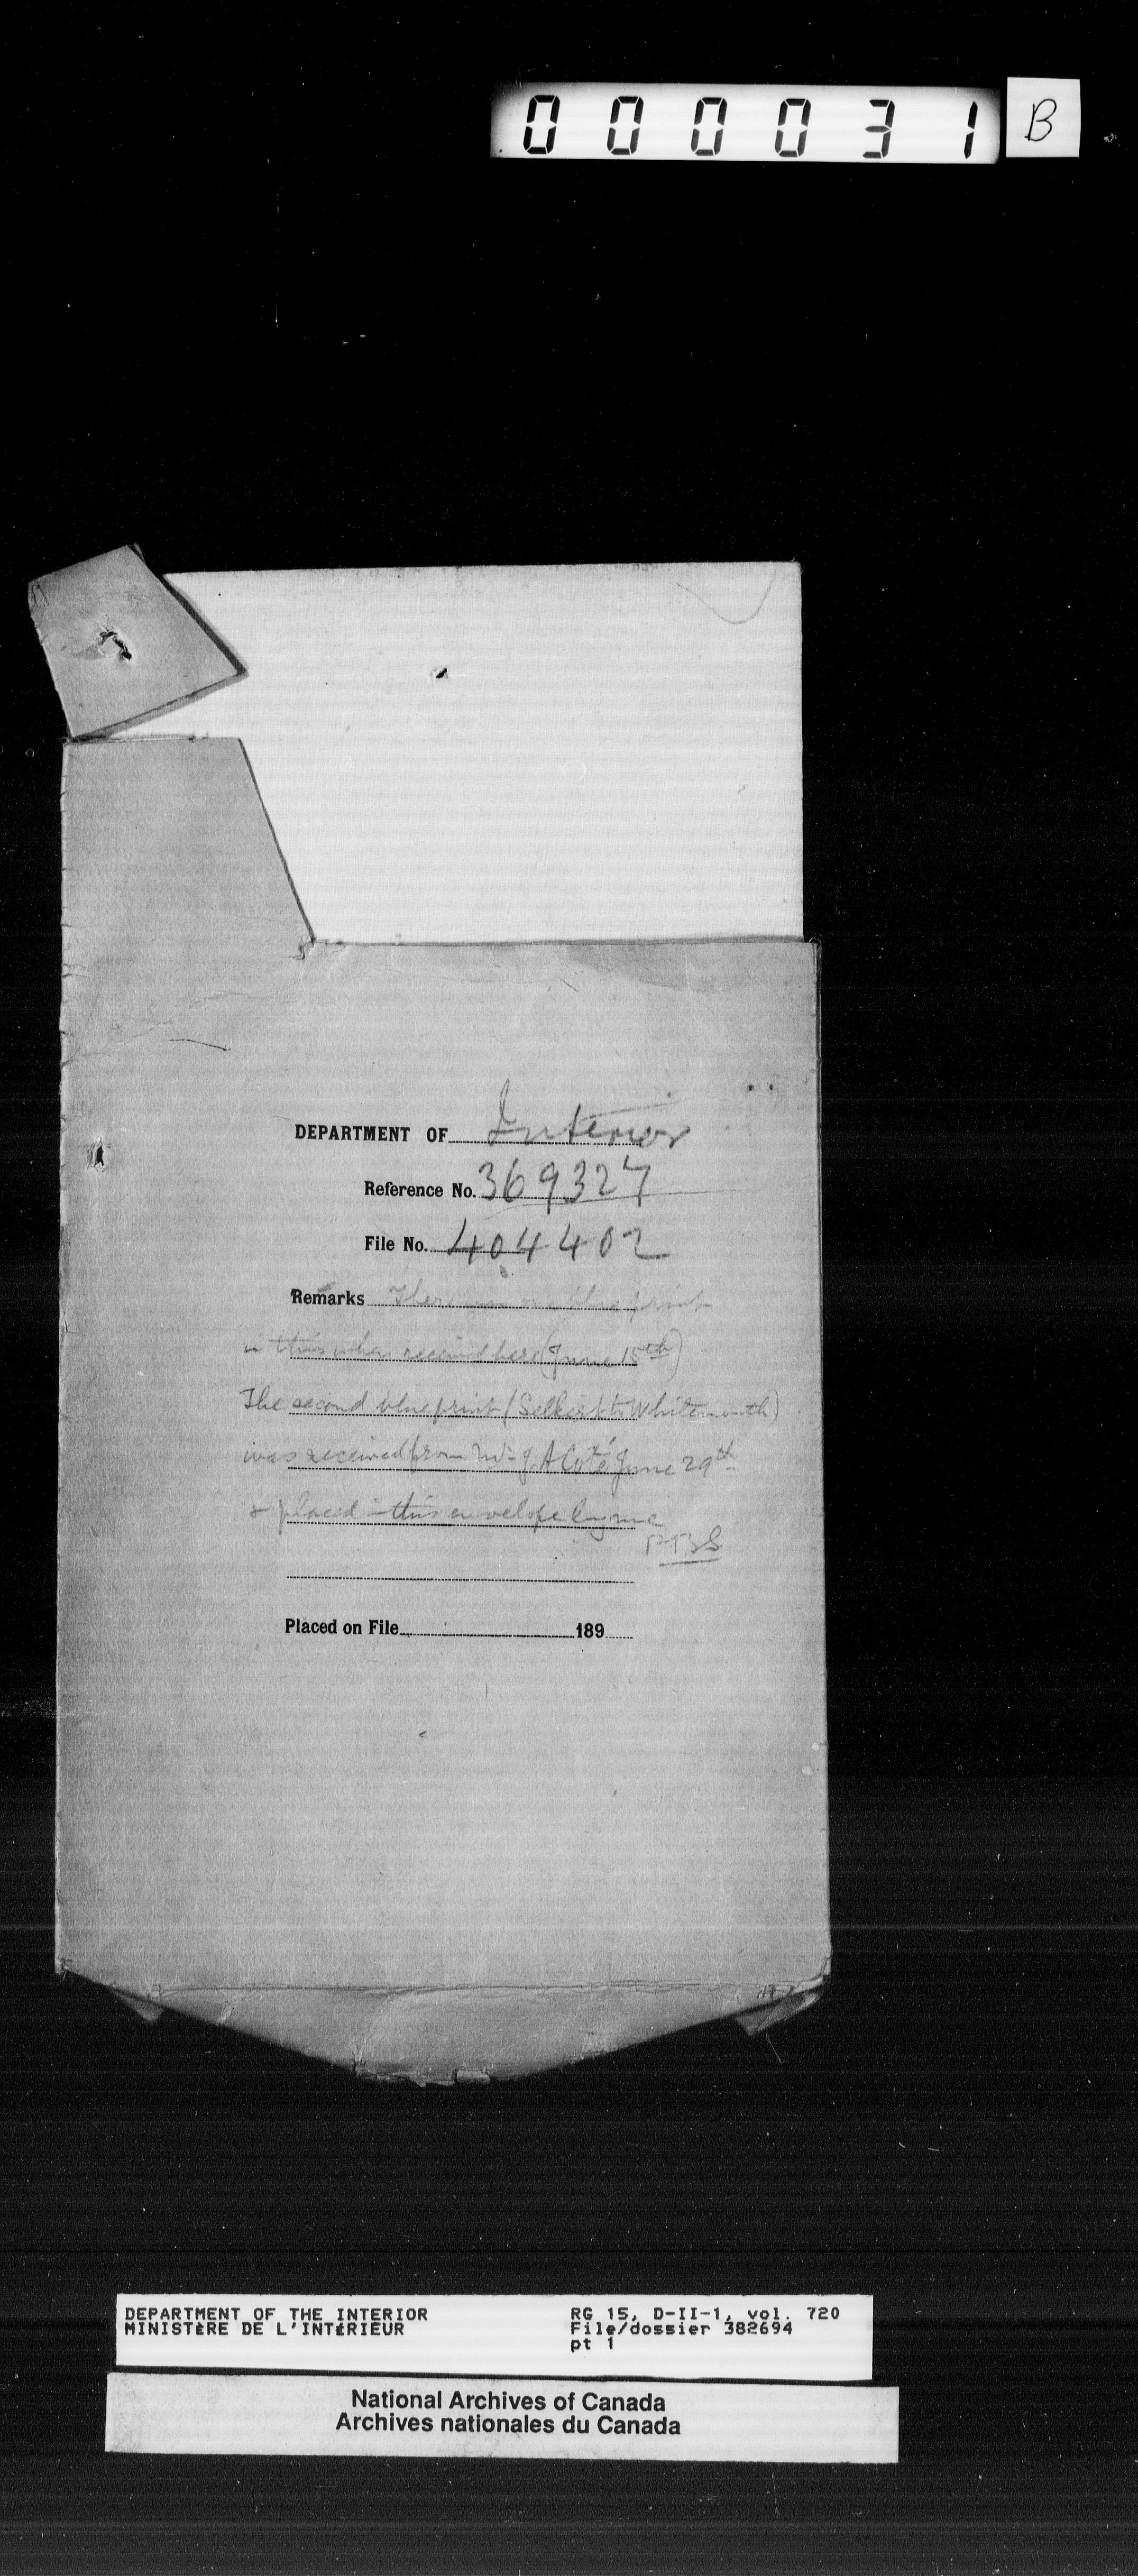 000031 B
DEPARTMENT OF Interior
Reference No. 369327
File No. 404402
Remarks There was one blue print
in this when received here (June 15th)
The second blue print (Selkirk to Whitemouth)
was received from Mr J. A Coté June 29th
& placed in this envelope by me
Placed on File 189
DEPARTMENT OF THE INTERIOR RG 15, D-II-1, vol. 720
MINISTÈRE DE L'INTÉRIEUR File/dossier 382694
pt 1
National Archives of Canada
Archives nationales du Canada